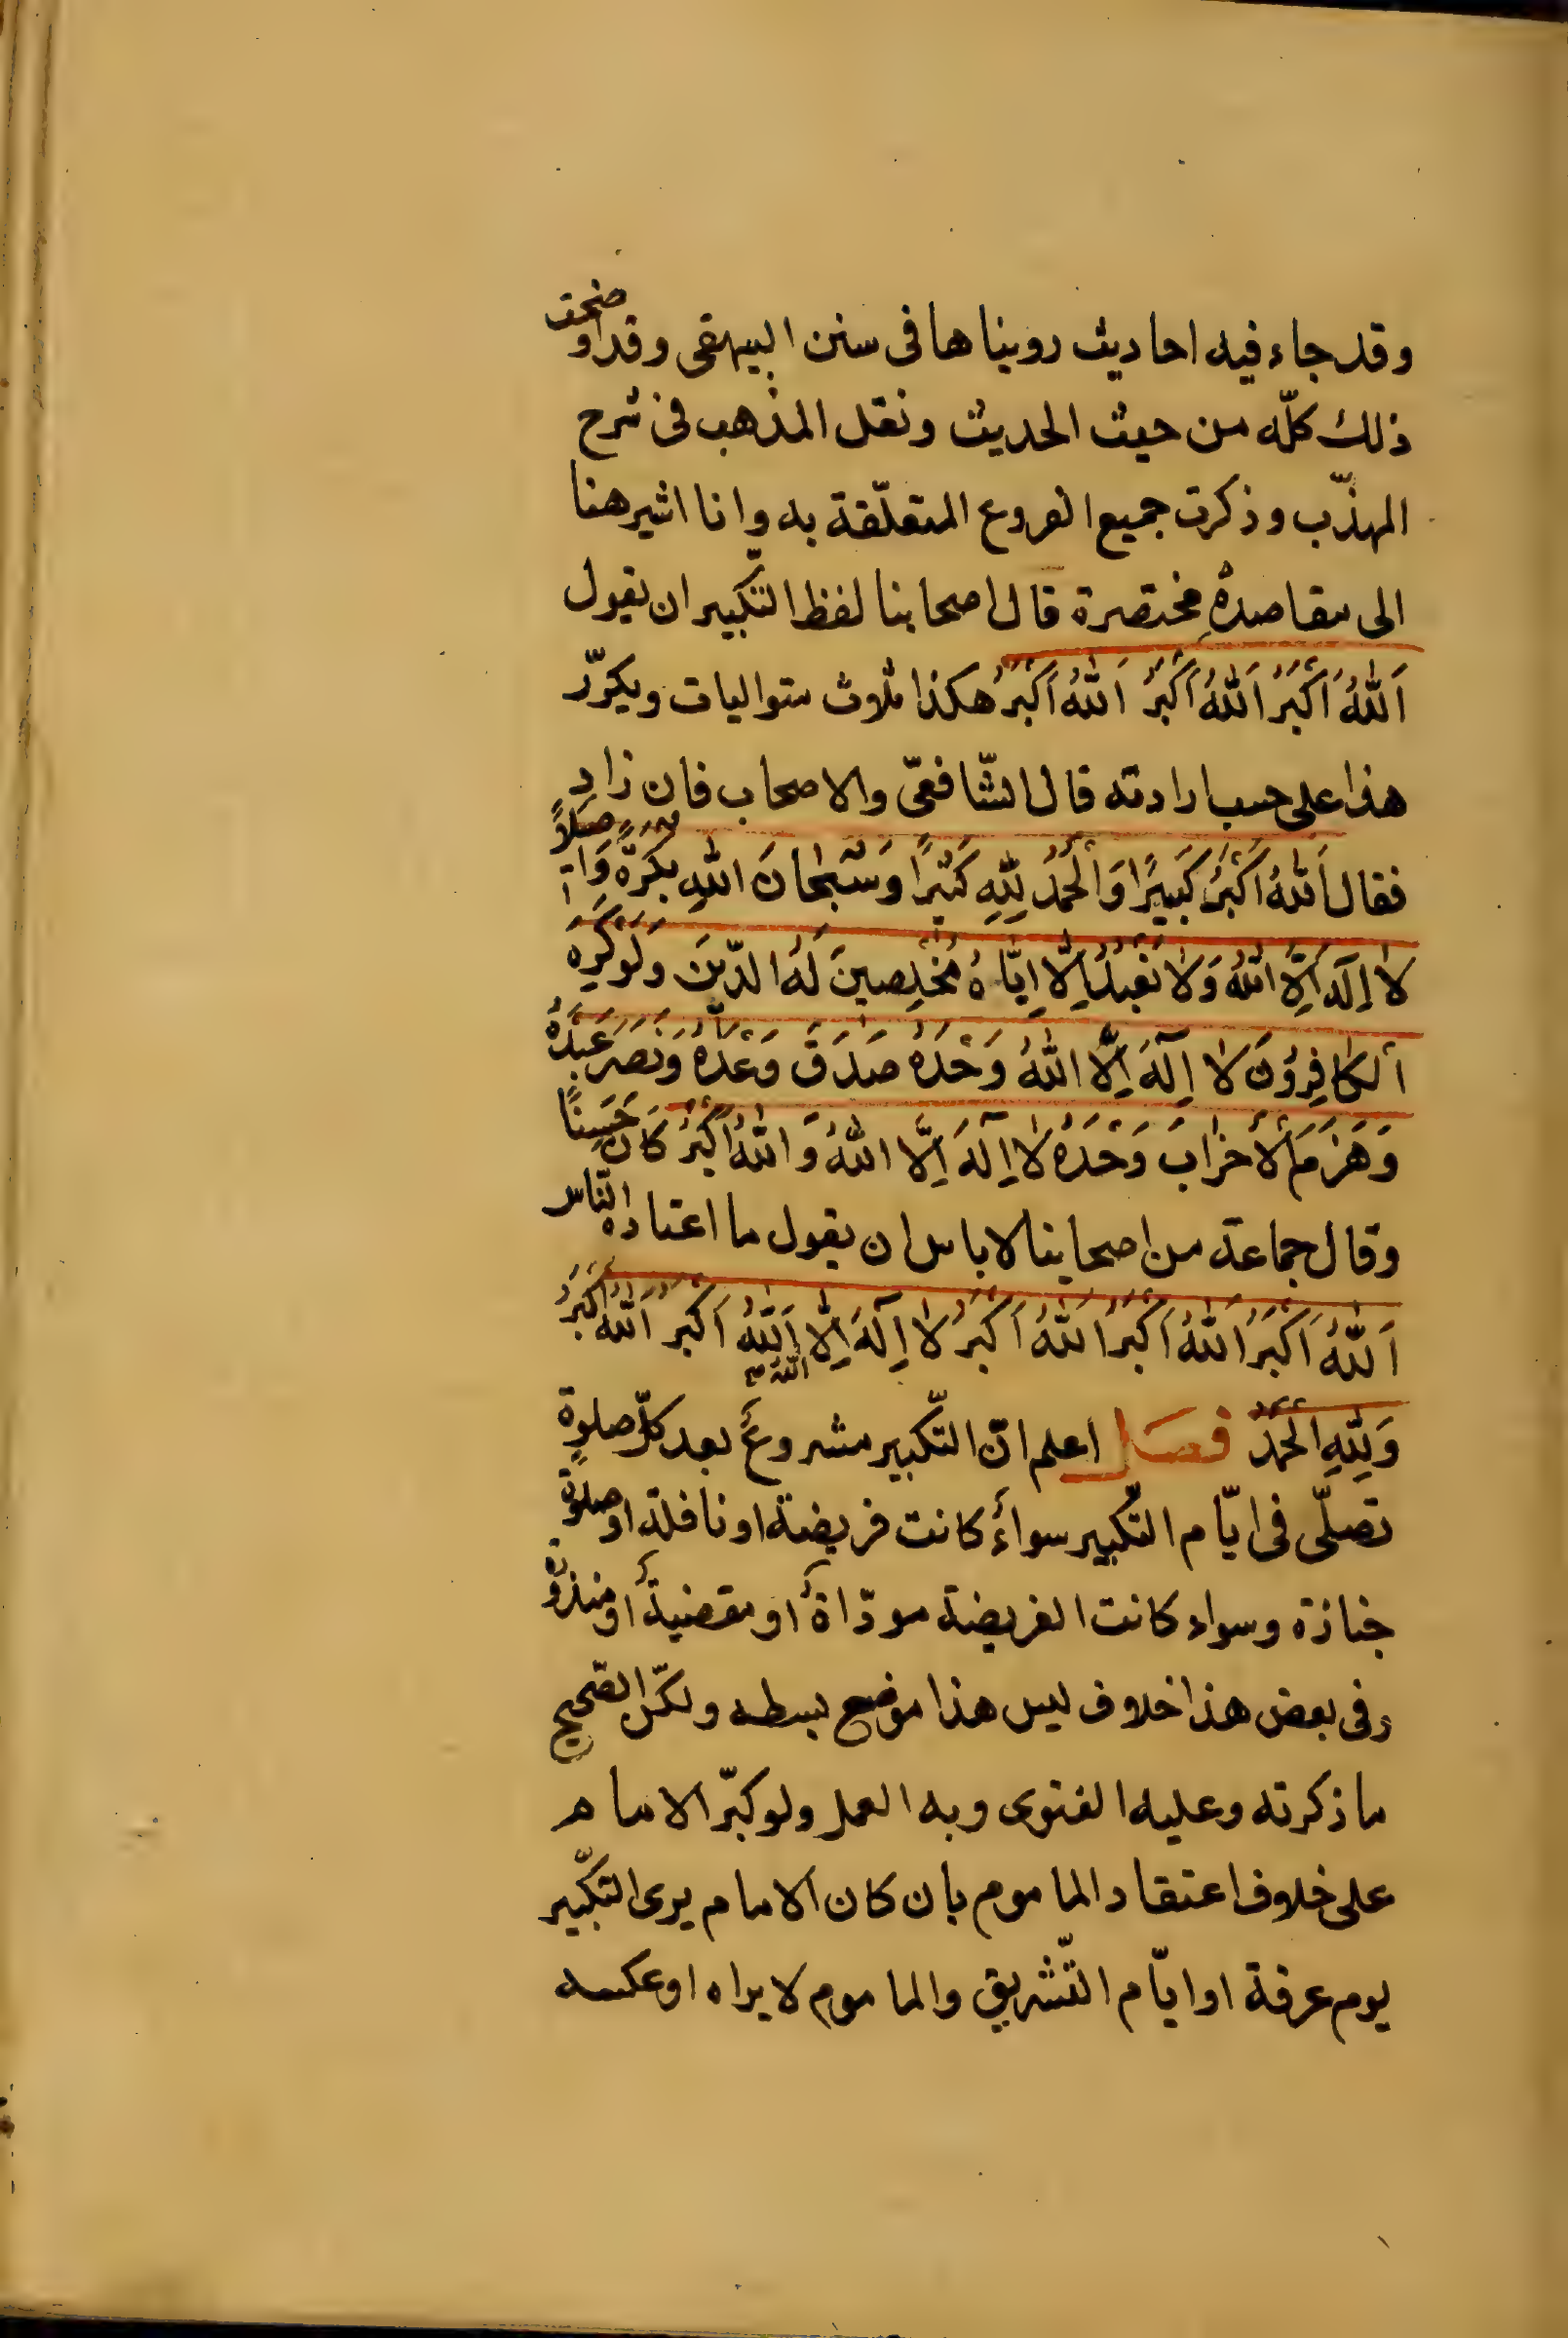 وقد جاء فيه احاديث رويناها فى سنن البيهقى وقد اوضحت
ذلك كلّه من حيث الحديث ونقل المذهب فى شرح
المهذّب وذكرت جميع الفروع المتعلّقة به وانا اشير هنا
الى مقاصدهِ مختصرة قال اصحابنا لفظ التّكبير ان يقول
اَللّٰهُ اَكْبَرُ اَللّٰهُ اَكْبَرُ اَللّٰهُ اَكْبَرُ هكذا ثلاث متواليات ويكرّر
هذا على حسب ارادته قال الشّافعىّ والاصحاب فان زاد
فقال اَللّٰهُ اَكْبَرُ كَبِيرًا وَالْحَمْدُ لِلّٰهِ كَثِيرًا وَسُبْحَانَ اللّٰهِ بُكْرَةً وَاَصِيلاً
لَا اِلٰهَ اِلَّا اللّٰهُ وَلَا نَعْبُدُ اِلَّا اِيَّاهُ مُخْلِصِينَ لَهُ الدِّينَ وَلَوْ كَرِهَ
الْكَافِرُونَ لَا اِلٰهَ اِلَّا اللّٰهُ وَحْدَهُ صَدَقَ وَعْدَهُ وَنَصَرَ عَبْدَهُ
وَهَزَمَ الْاَحْزَابَ وَحْدَهُ لَا اِلٰهَ اِلَّا اللّٰهُ وَاللّٰهُ اَكْبَرُ كَانَ حَسَنًا
وقال جماعة من اصحابنا لا باس ان يقول ما اعتاده النّاس
اَللّٰهُ اَكْبَرُ اَللّٰهُ اَكْبَرُ اَللّٰهُ اَكْبَرُ لَا اِلٰهَ اِلَّا اللّٰهُ اَللّٰهُ اَكْبَرُ اَللّٰهُ اَكْبَرُ
وَلِلّٰهِ الْحَمْدُ فصل اعلم انّ التّكبير مشروعٌ بعد كلّ صلوةٍ
تصلّى فى ايّام التّكبير سواءٌ كانت فريضة او نافلة او صلوة
جنازة وسواء كانت الفريضة مودّاةً او مقضيةً او منذورة
وفى بعض هذا خلاف ليس هذا موضع بسطه ولكنّ الصّحيح
ما ذكرته وعليه الفتوى وبه العمل ولو كبّر الامام
على خلاف اعتقاد الماموم بان كان الامام يرى التّكبير
يوم عرفة او ايّام التّشريق والماموم لا يراه او عكسه